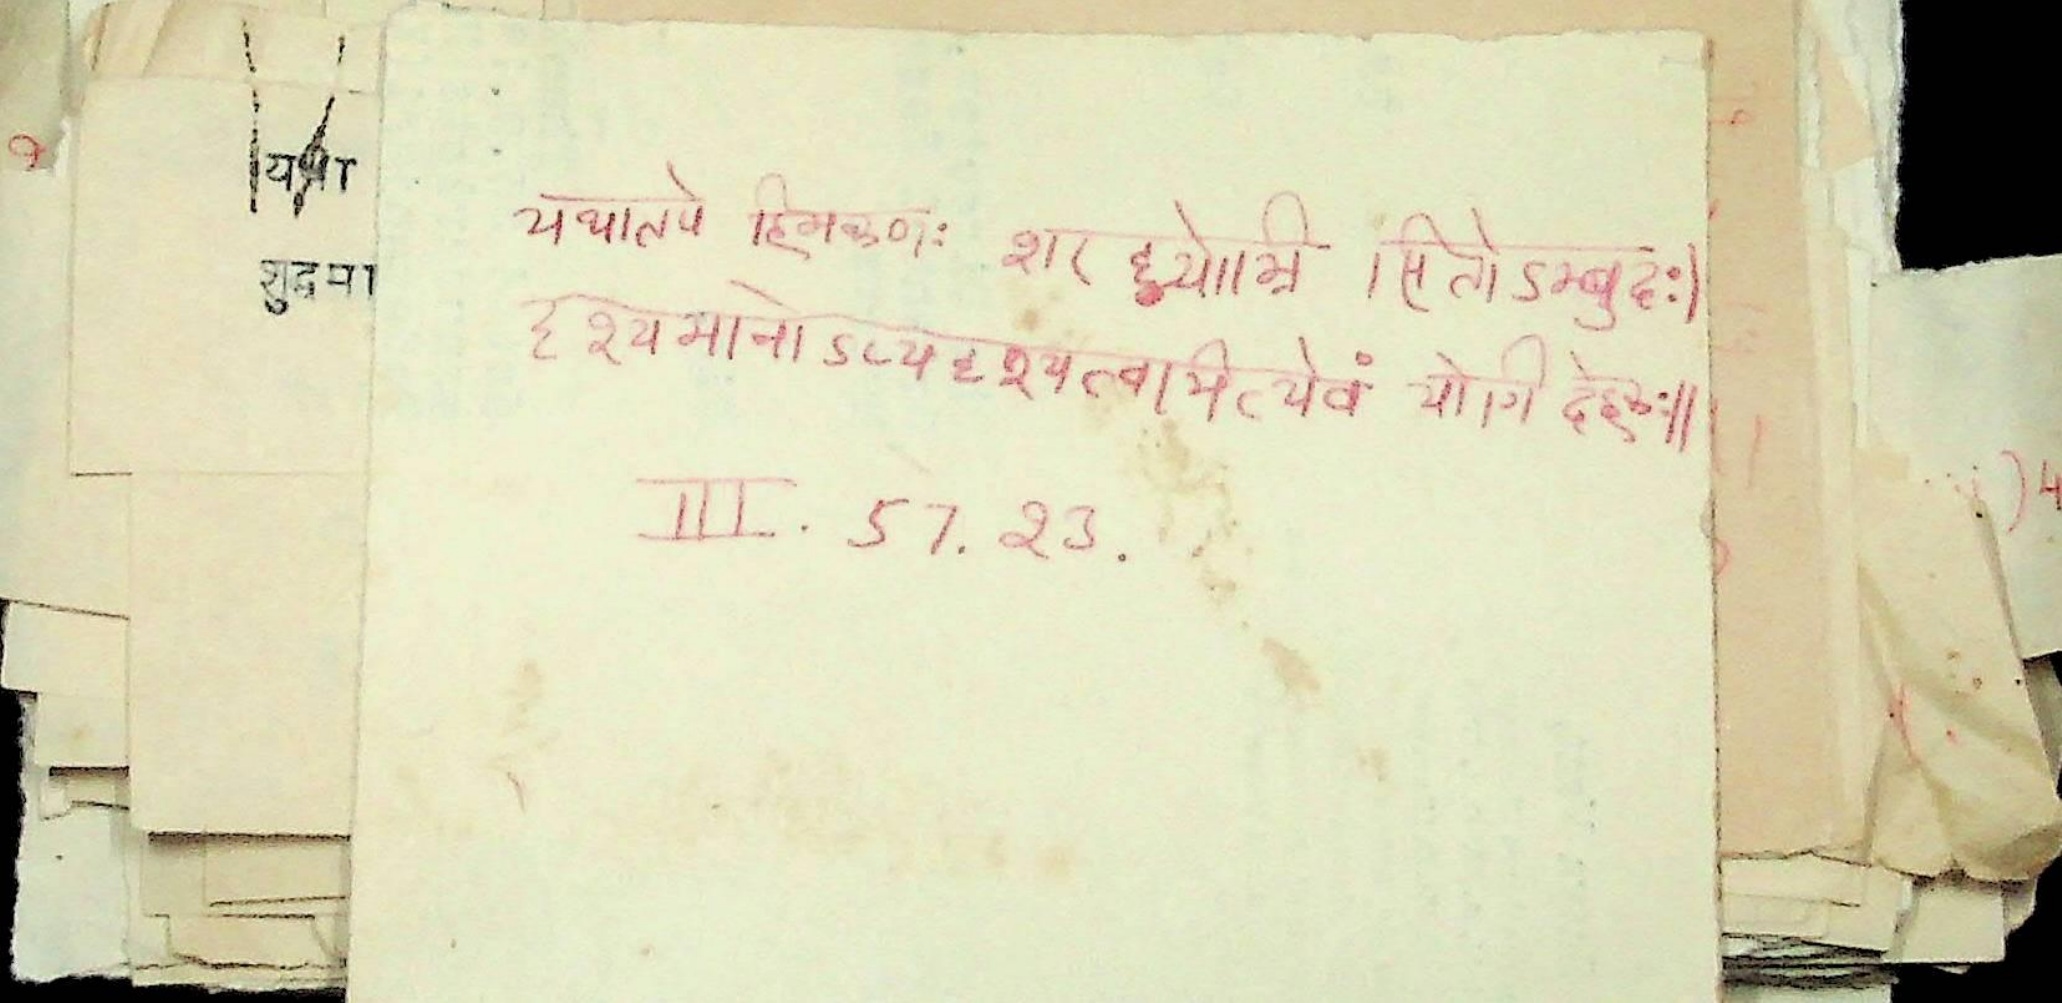 यथा
शुद्धमा
यथातपे हिमकणः शरद्व्योम्नि सितोऽम्बुदः।
दृश्यमानोऽप्यदृश्यत्वमित्येवं योगिदेहकः॥
III. 57. 23.